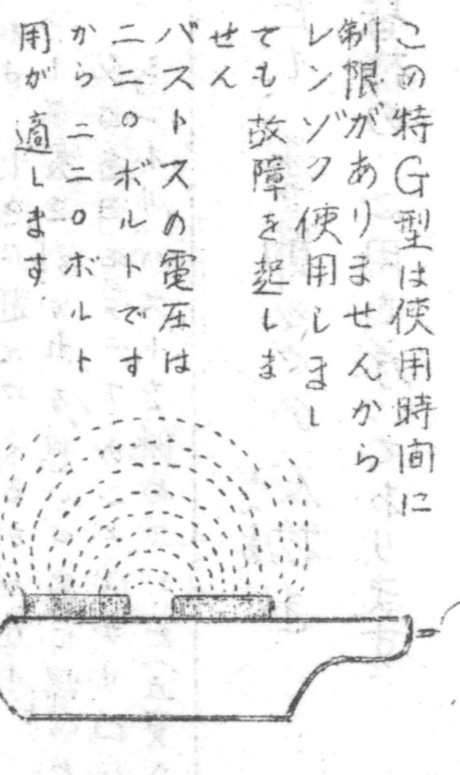 この特G型は使用時間に
制限がありませんから
レンゾク使用しまし
ても故障を起しま
せん
バストスの電圧は
二二〇ボルトです
から二二〇ボルト
用が適します